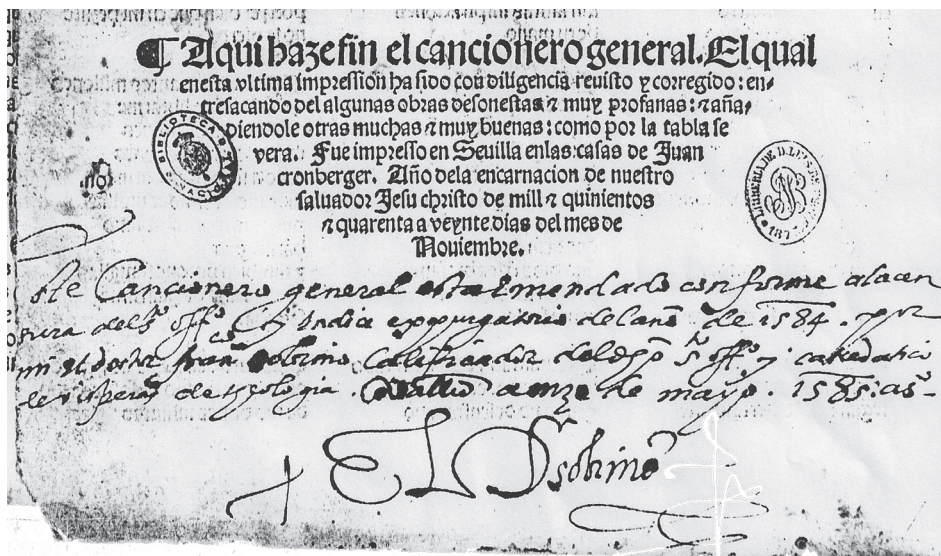 ¶ Aqui haze fin el cancionero general. El qual
enesta vltima impression ha sido con diligencia reuisto y corregido: en-
tresacando del algunas obras desonestas ⁊ muy profanas: ⁊ aña-
diendole otras muchas ⁊ muy buenas: como por la tabla se
vera. Fue impresso en Seuilla enlas casas de Juan
cronberger. Año dela encarnacion de nuestro
saluador Jesu christo de mill ⁊ quinientos
⁊ quarenta a veynte dias del mes de
Nouiembre.
BIBLIOTECA
ste Cancionero general esta Emendado conforme ala cen
sura del sto offo Indice expurgatorio del año de 1584. por
mi el doctor franco sobrino Calificador del dho sto offo y catedratico
de visperas de theologia. Vallid a onze de mayo. 1585. as-
EL D sobrino